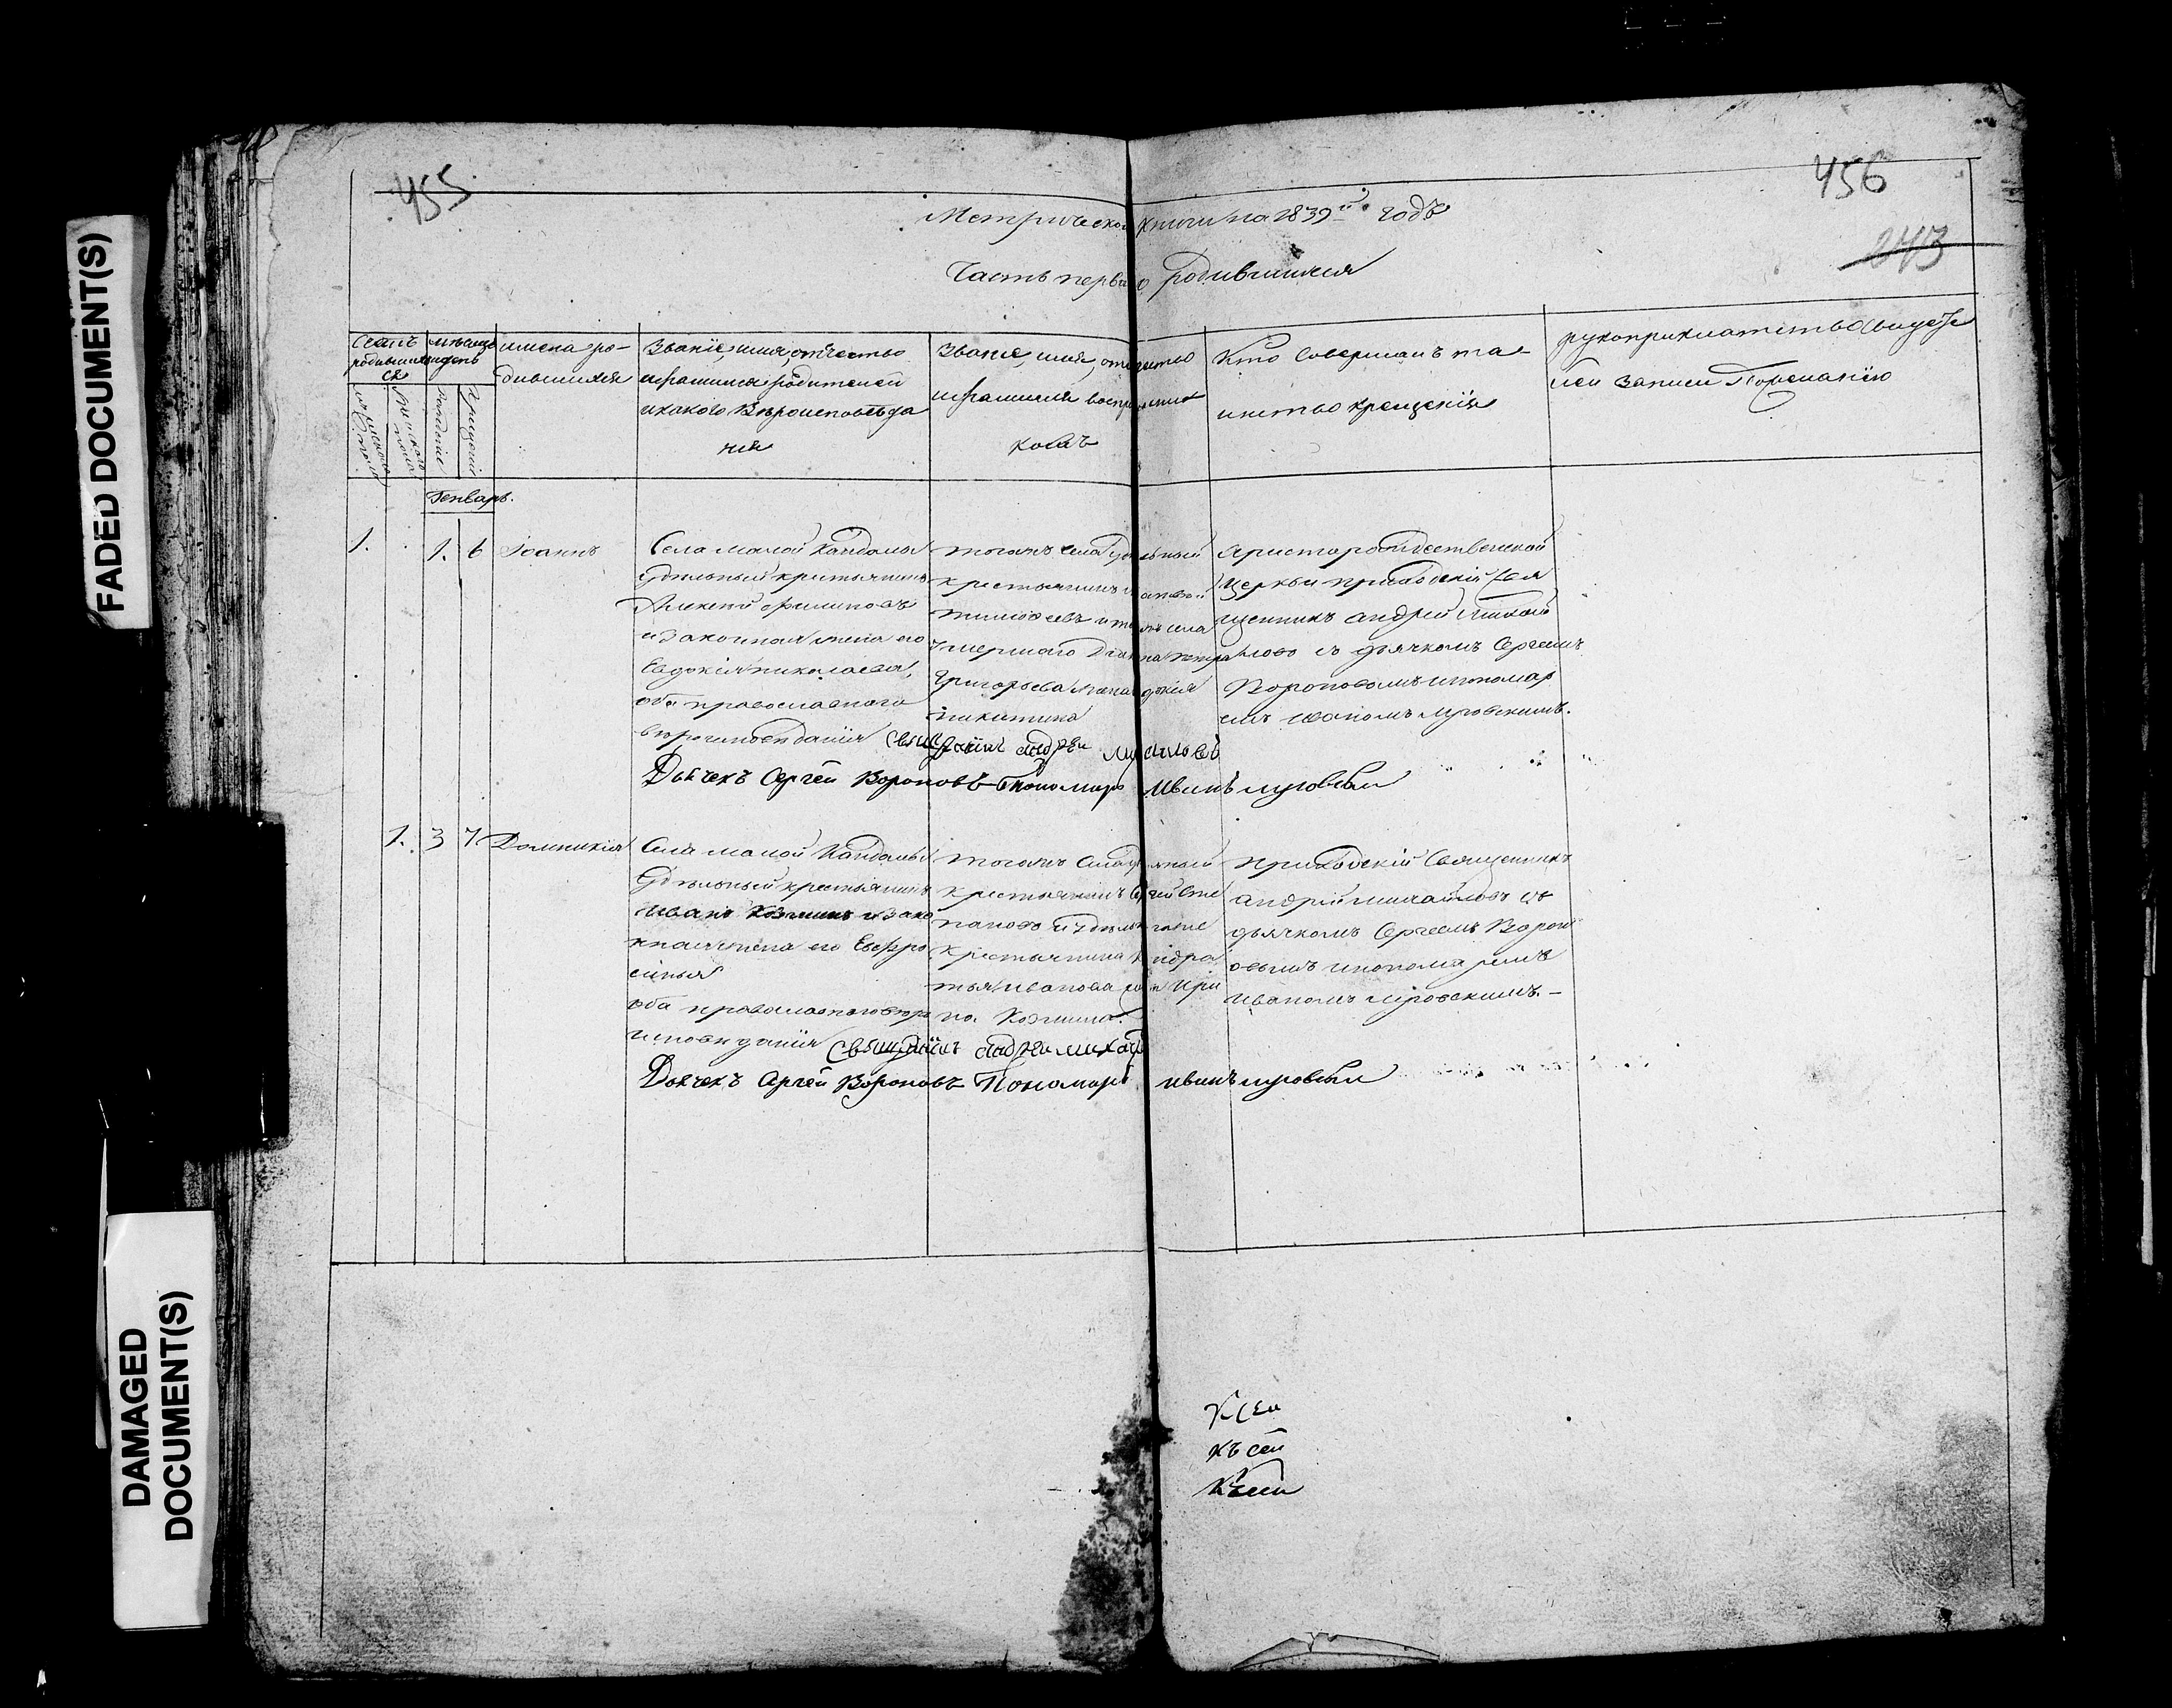 FADED DOCUMENT(S)
DAMAGED
DOCUMENT(S)
455
456
243
Метрической книги на 1839й годъ
Часть первая о родившихся
Счетъ родивших ся
мѣсяцъ и день
имена ро-
дившихся
Званіе, имя, отчество
и фамилія родителей
и какого вѣроисповѣда
нія
Званіе, имя, отчество
и фамилія воспріемни
ковъ
Кто совершалъ та-
инство крещенія
рукоприкладство свидѣте
лей записи по желанію
Генварь.
1.
1.
6
Іоаннъ
Села малой Кандалы
удѣльный крестьянинъ
Алексѣй Филиповъ
и законная жена его
Евдокія николаева,
оба православного
вѣроисповѣданія
тогожъ села удѣльный
крестьянинъ
тимофеевъ и тогожъ села
умершаго
Григорьева жена
никитина
христорождественской
Церкви приходскій Свя
щенникъ андрей михай
ловъ съ дьячкомъ Сергеемъ
Вороновомъ и пономар
емъ иваномъ луговскимъ.
Священникъ андрей михайловъ
Дьячекъ Сергей Вороновъ Пономарь Иванъ луговскій
1.
3
7
Домникія
Села малой Кандалы
Удѣльный крестьянинъ
Иванъ Козминъ и зако
нная жена его Евфро
синья
оба православного вѣро
исповѣданія
тогожъ села удѣльный
крестьянинъ Сергей Сте
пановъ и удѣльного
крестьянина
тья иванова Ири
на Козмина.
приходскій Священникъ
андрей михайловъ съ
дьячкомъ Сергеемъ Ворон
овымъ и пономаремъ
иваномъ луговскимъ.-
Священникъ андрей михай
Дьячекъ Сергей Вороновъ Пономарь иванъ луговскій
К сей
къ сей
Къ сей